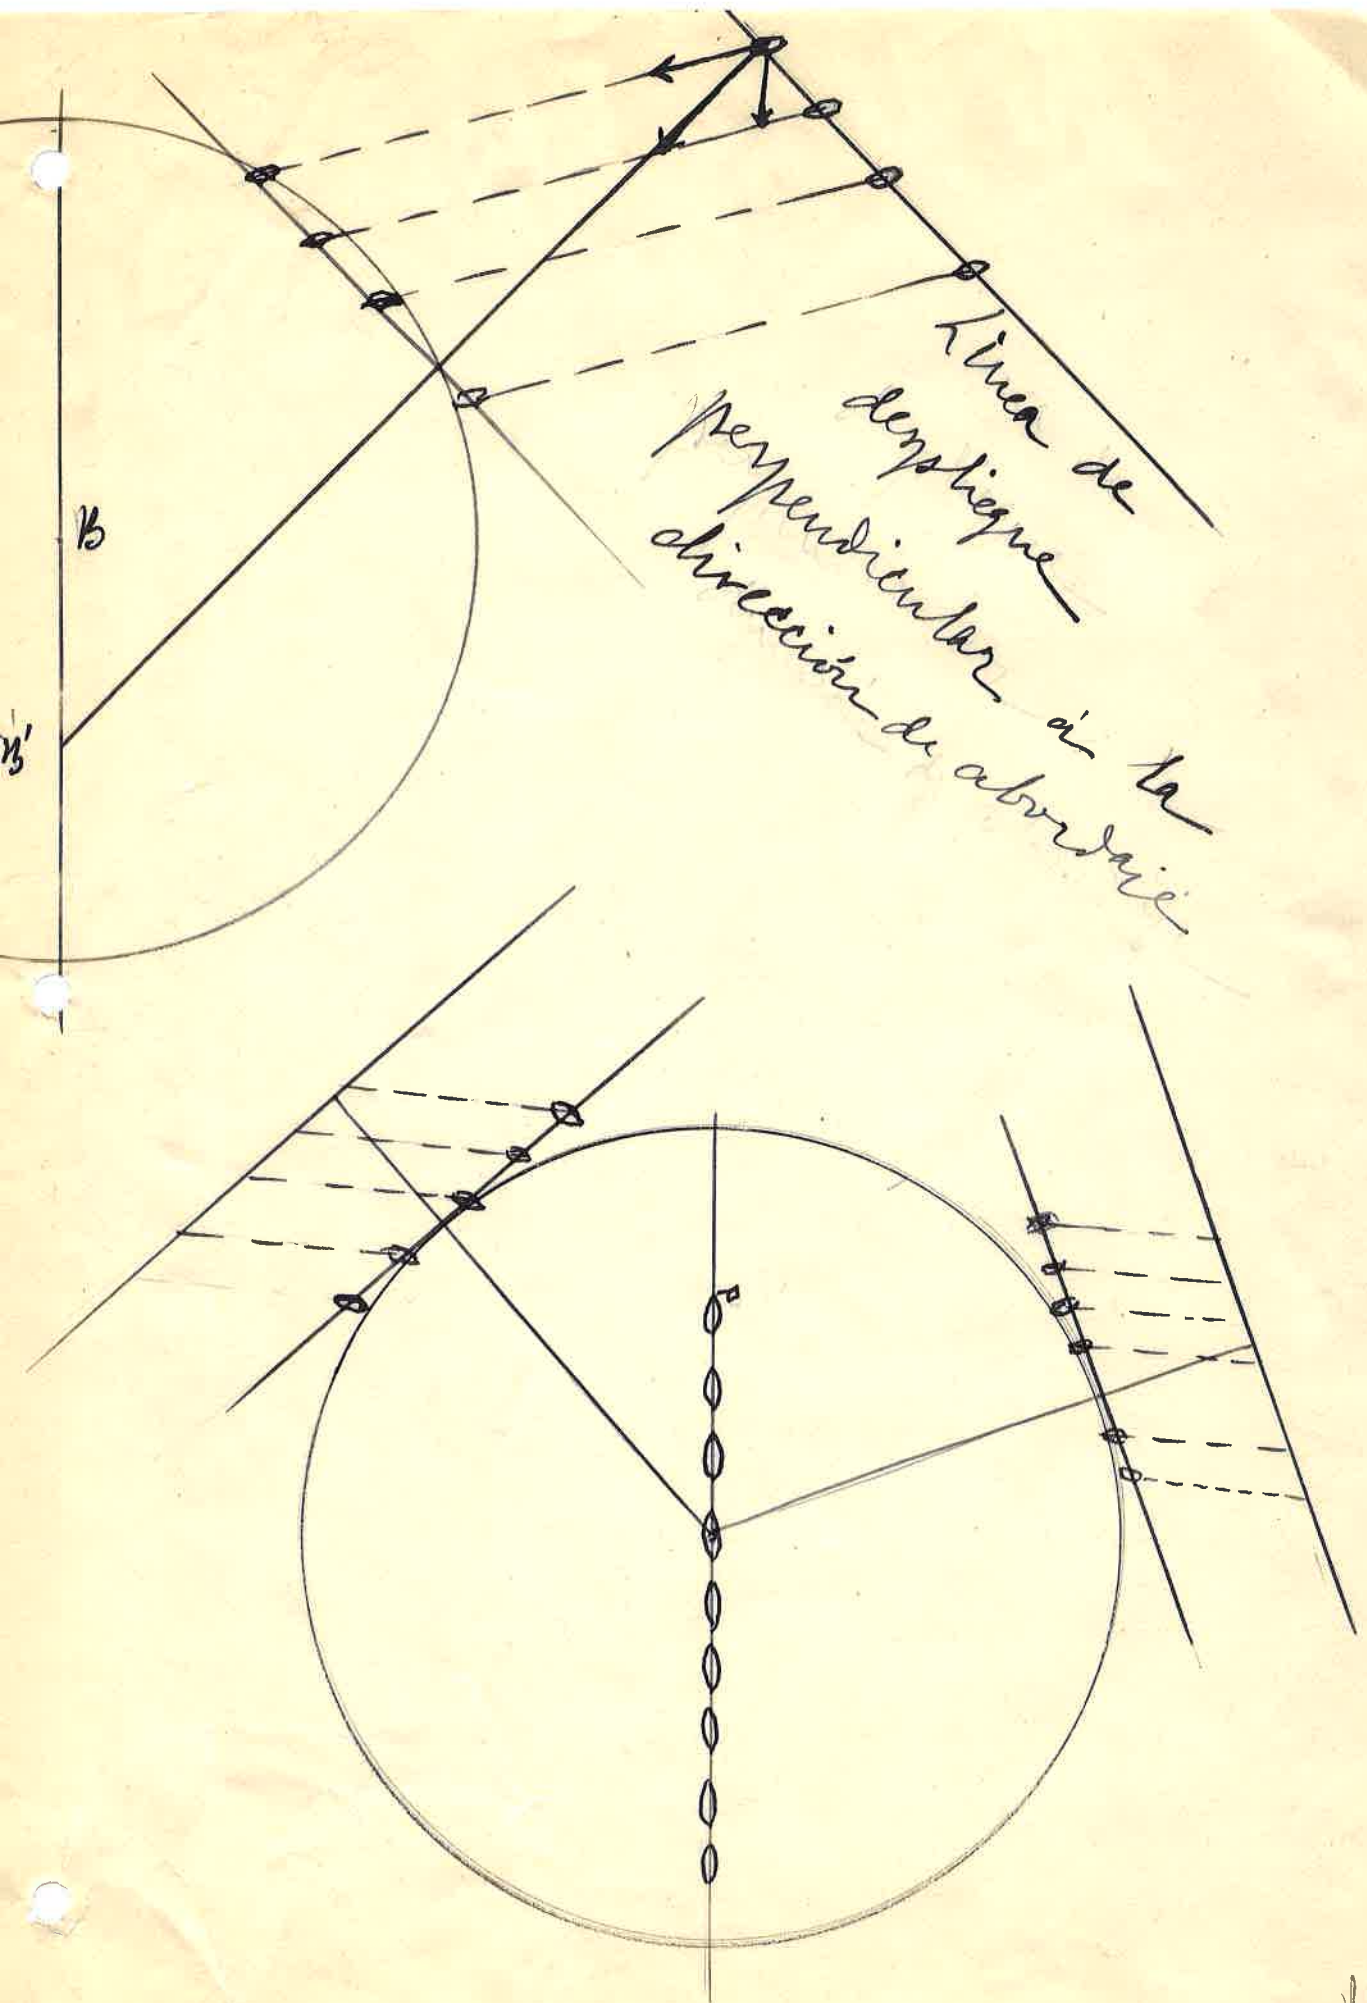 Línea de
despliegue
perpendicular á la
dirección de abordaje
B
B'